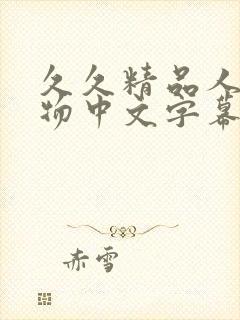 久久精品人
物中文字幕
赤雪